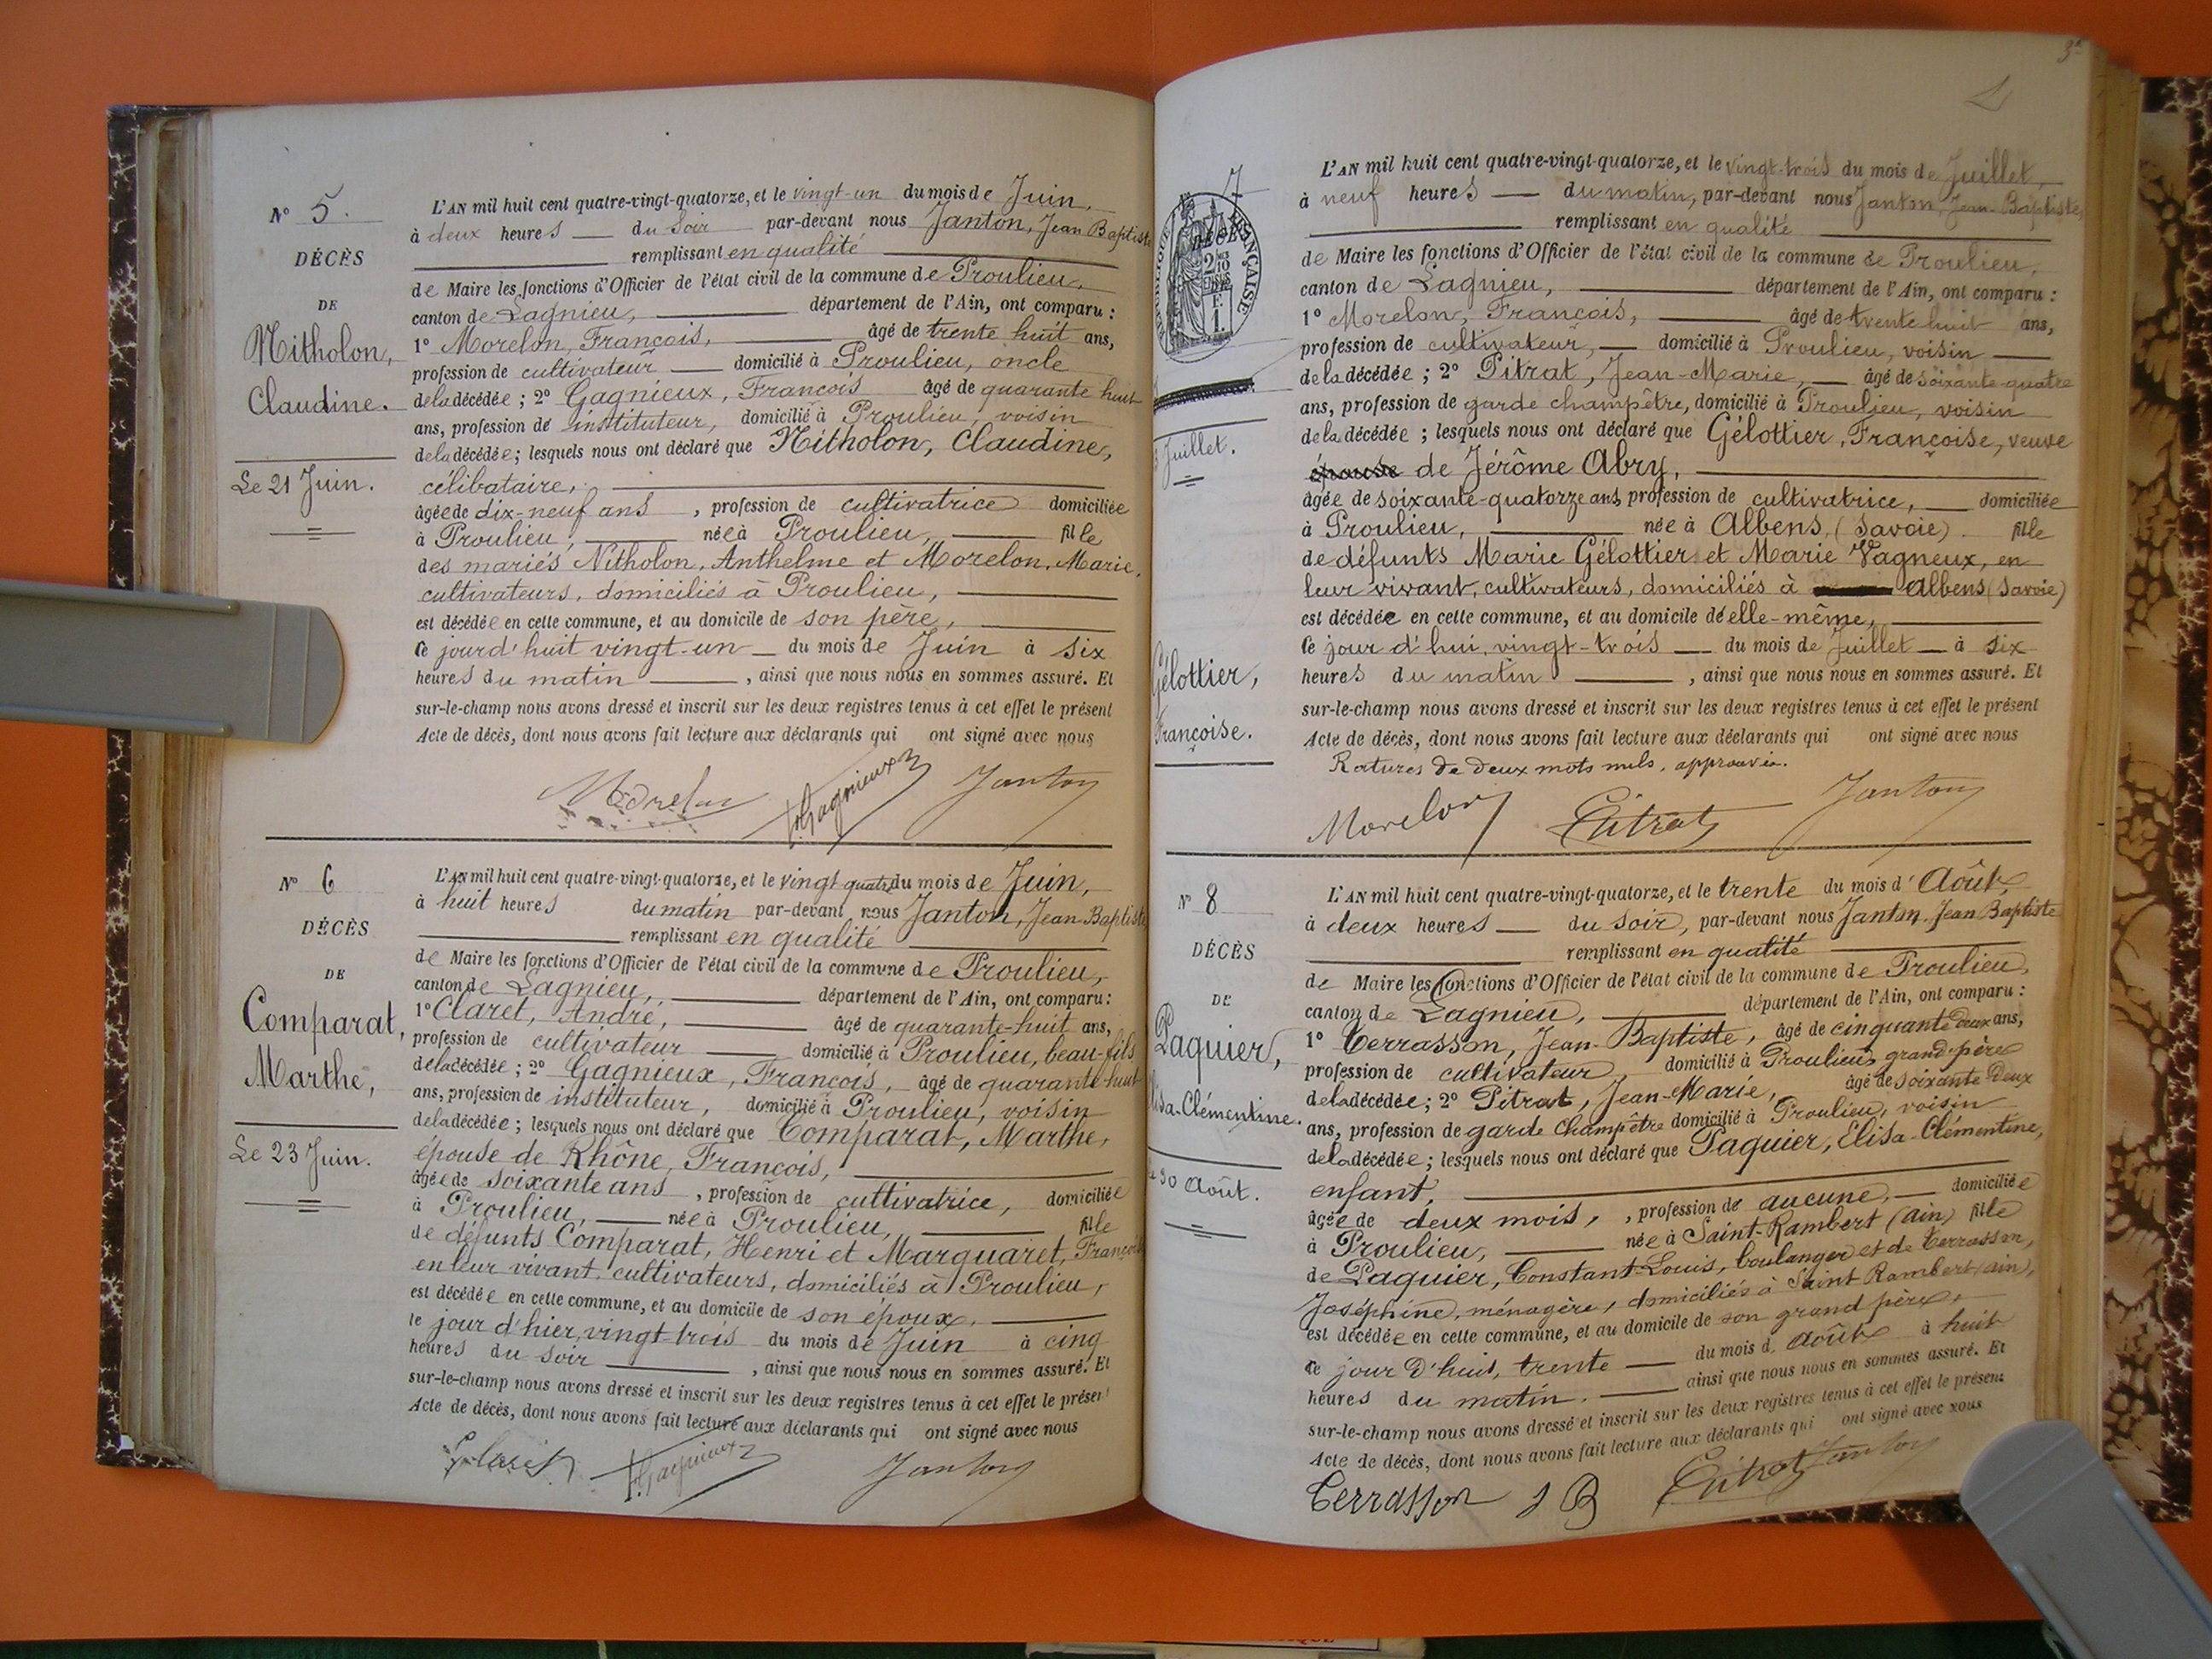 N° 5.
DÉCÈS
DE
Nitholon,
Claudine.
Le 21 Juin.
L'AN mil huit cent quatre-vingt-quatorze, et le vingt-un du mois de Juin,
à deux heures du soir par-devant nous Janton, Jean Baptiste
remplissant en qualité
de Maire les fonctions d'Officier de l'état civil de la commune de Proulieu,
canton de Lagnieu, département de l'Ain, ont comparu :
1° Morelon, François, âgé de trente huit ans,
profession de cultivateur domicilié à Proulieu, oncle
de la décédée ; 2° Gagnieux, François âgé de quarante huit
ans, profession de instituteur, domicilié à Proulieu, voisin
de la décédée ; lesquels nous ont déclaré que Nitholon, Claudine,
célibataire,
âgée de dix-neuf ans , profession de cultivatrice domiciliée
à Proulieu, née à Proulieu, fille
des mariés Nitholon, Anthelme et Morelon, Marie,
cultivateurs, domiciliés à Proulieu,
est décédée en cette commune, et au domicile de son père,
ce jourd'huit vingt-un du mois de Juin à six
heures du matin , ainsi que nous nous en sommes assuré. Et
sur-le-champ nous avons dressé et inscrit sur les deux registres tenus à cet effet le présent
Acte de décès, dont nous avons fait lecture aux déclarants qui ont signé avec nous
Morelon F. Gagnieux Janton
N° 6
DÉCÈS
DE
Comparat,
Marthe,
Le 23 Juin.
L'AN mil huit cent quatre-vingt-quatorze, et le vingt quatre du mois de Juin,
à huit heures du matin par-devant nous Janton, Jean Baptiste
remplissant en qualité
de Maire les fonctions d'Officier de l'état civil de la commune de Proulieu,
canton de Lagnieu, département de l'Ain, ont comparu :
1° Claret, André, âgé de quarante-huit ans,
profession de cultivateur domicilié à Proulieu, beau-fils
de la décédée ; 2° Gagnieux, François, âgé de quarante-huit
ans, profession de instituteur, domicilié à Proulieu, voisin
de la décédée ; lesquels nous ont déclaré que Comparat, Marthe,
épouse de Rhône, François,
âgée de soixante ans , profession de cultivatrice, domiciliée
à Proulieu, née à Proulieu, fille
de défunts Comparat, Henri et Marguaret,
en leur vivant, cultivateurs, domiciliés à Proulieu,
est décédée en cette commune, et au domicile de son époux,
le jour d'hier, vingt-trois du mois de Juin à cinq
heures du soir , ainsi que nous nous en sommes assuré. Et
sur-le-champ nous avons dressé et inscrit sur les deux registres tenus à cet effet le présent
Acte de décès, dont nous avons fait lecture aux déclarants qui ont signé avec nous
Claret F. Gagnieux Janton
7
RÉPUBLIQUE FRANÇAISE
DÉCÈS
Juillet.
Gélottier,
Françoise.
L'AN mil huit cent quatre-vingt-quatorze, et le vingt-trois du mois de Juillet,
à neuf heures du matin, par-devant nous Janton, Jean-Baptiste,
remplissant en qualité
de Maire les fonctions d'Officier de l'état civil de la commune de Proulieu,
canton de Lagnieu, département de l'Ain, ont comparu :
1° Morelon, François, âgé de trente huit ans,
profession de cultivateur, domicilié à Proulieu, voisin
de la décédée ; 2° Pitrat, Jean-Marie, âgé de soixante-quatre
ans, profession de garde champêtre, domicilié à Proulieu, voisin
de la décédée ; lesquels nous ont déclaré que Gélottier, Françoise, veuve
épouse de Jérôme Abry,
âgée de soixante-quatorze ans, profession de cultivatrice, domiciliée
à Proulieu, née à Albens, (Savoie). fille
de défunts Marie Gélottier et Marie Vagneux, en
leur vivant, cultivateurs, domiciliés à Albens (Savoie)
est décédée en cette commune, et au domicile de elle-même,
ce jour d'hui, vingt-trois du mois de Juillet à six
heures du matin , ainsi que nous nous en sommes assuré. Et
sur-le-champ nous avons dressé et inscrit sur les deux registres tenus à cet effet le présent
Acte de décès, dont nous avons fait lecture aux déclarants qui ont signé avec nous
Ratures de deux mots nuls, approuvée.
Morelon Pitrat Janton
N° 8
DÉCÈS
DE
Paquier,
Elisa-Clémentine.
Le 30 Août.
L'AN mil huit cent quatre-vingt-quatorze, et le trente du mois d'Août,
à deux heures du soir, par-devant nous Janton, Jean Baptiste
remplissant en qualité
de Maire les fonctions d'Officier de l'état civil de la commune de Proulieu,
canton de Lagnieu, département de l'Ain, ont comparu :
1° Terrasson, Jean-Baptiste, âgé de cinquante deux ans,
profession de cultivateur, domicilié à Proulieu, grand-père
de la décédée ; 2° Pitrat, Jean-Marie, âgé de soixante deux
ans, profession de garde champêtre domicilié à Proulieu, voisin
de la décédée ; lesquels nous ont déclaré que Paquier, Elisa-Clémentine,
enfant,
âgée de deux mois, , profession de aucune, domiciliée
à Proulieu, née à Saint-Rambert (Ain) fille
de Paquier, Constant-Louis, boulanger et de Terrasson,
Joséphine, ménagère, domiciliés à Saint Rambert (Ain),
est décédée en cette commune, et au domicile de son grand père,
ce jour d'huit, trente du mois d'Août à huit
heures du matin. ainsi que nous nous en sommes assuré. Et
sur-le-champ nous avons dressé et inscrit sur les deux registres tenus à cet effet le présent
Acte de décès, dont nous avons fait lecture aux déclarants qui ont signé avec nous
Terrasson J B Pitrat Janton